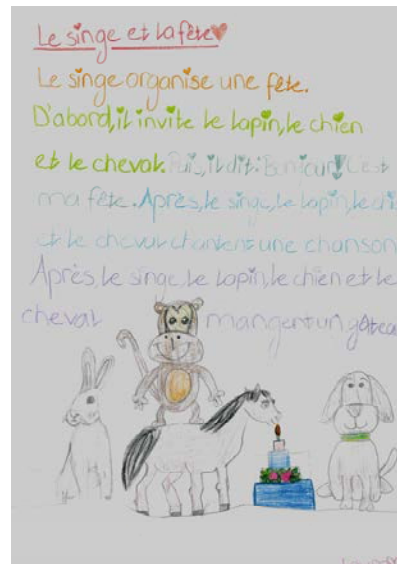 Le singe et la fête
Le singe organise une fête.
D'abord, il invite le lapin, le chien
et le cheval. Puis, il dit: Bonjour! C'est
ma fête. Après, le singe, le lapin, le chi
et le cheval chantent une chanson
Après, le singe, le lapin, le chien et le
cheval mangent un gâtea